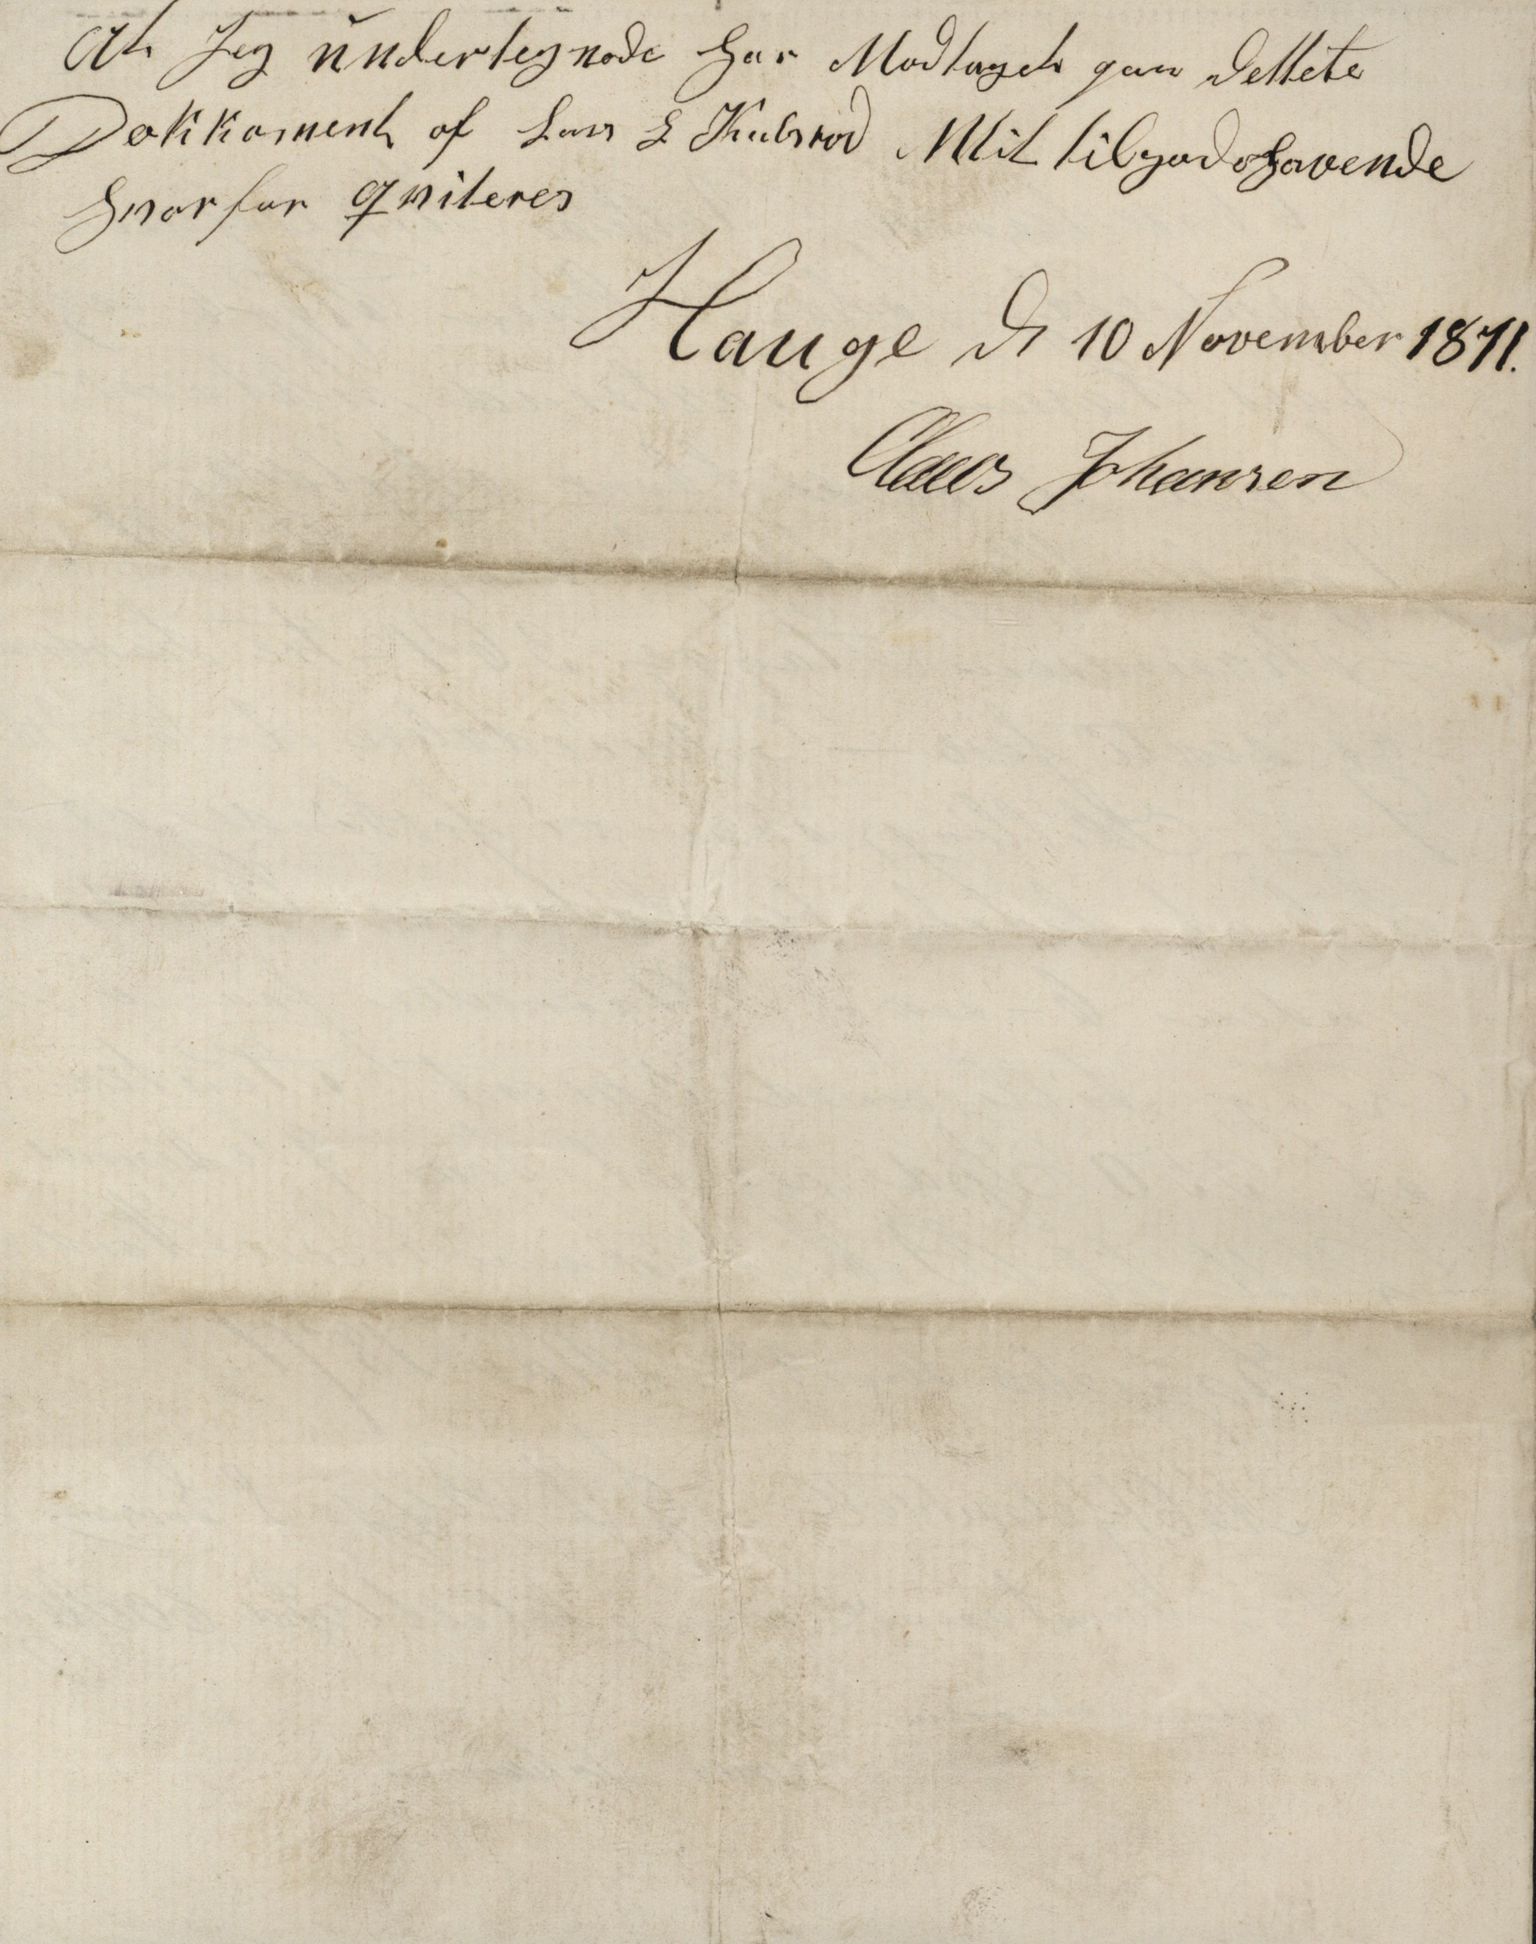 At Jeg undertegnede har Modtaget paa dettete
Dokkoment af Lars L Kubsrød Mit tilgodehavende
hvorfor qviteres
Hauge d 10 November 1871.
Claus Johansen